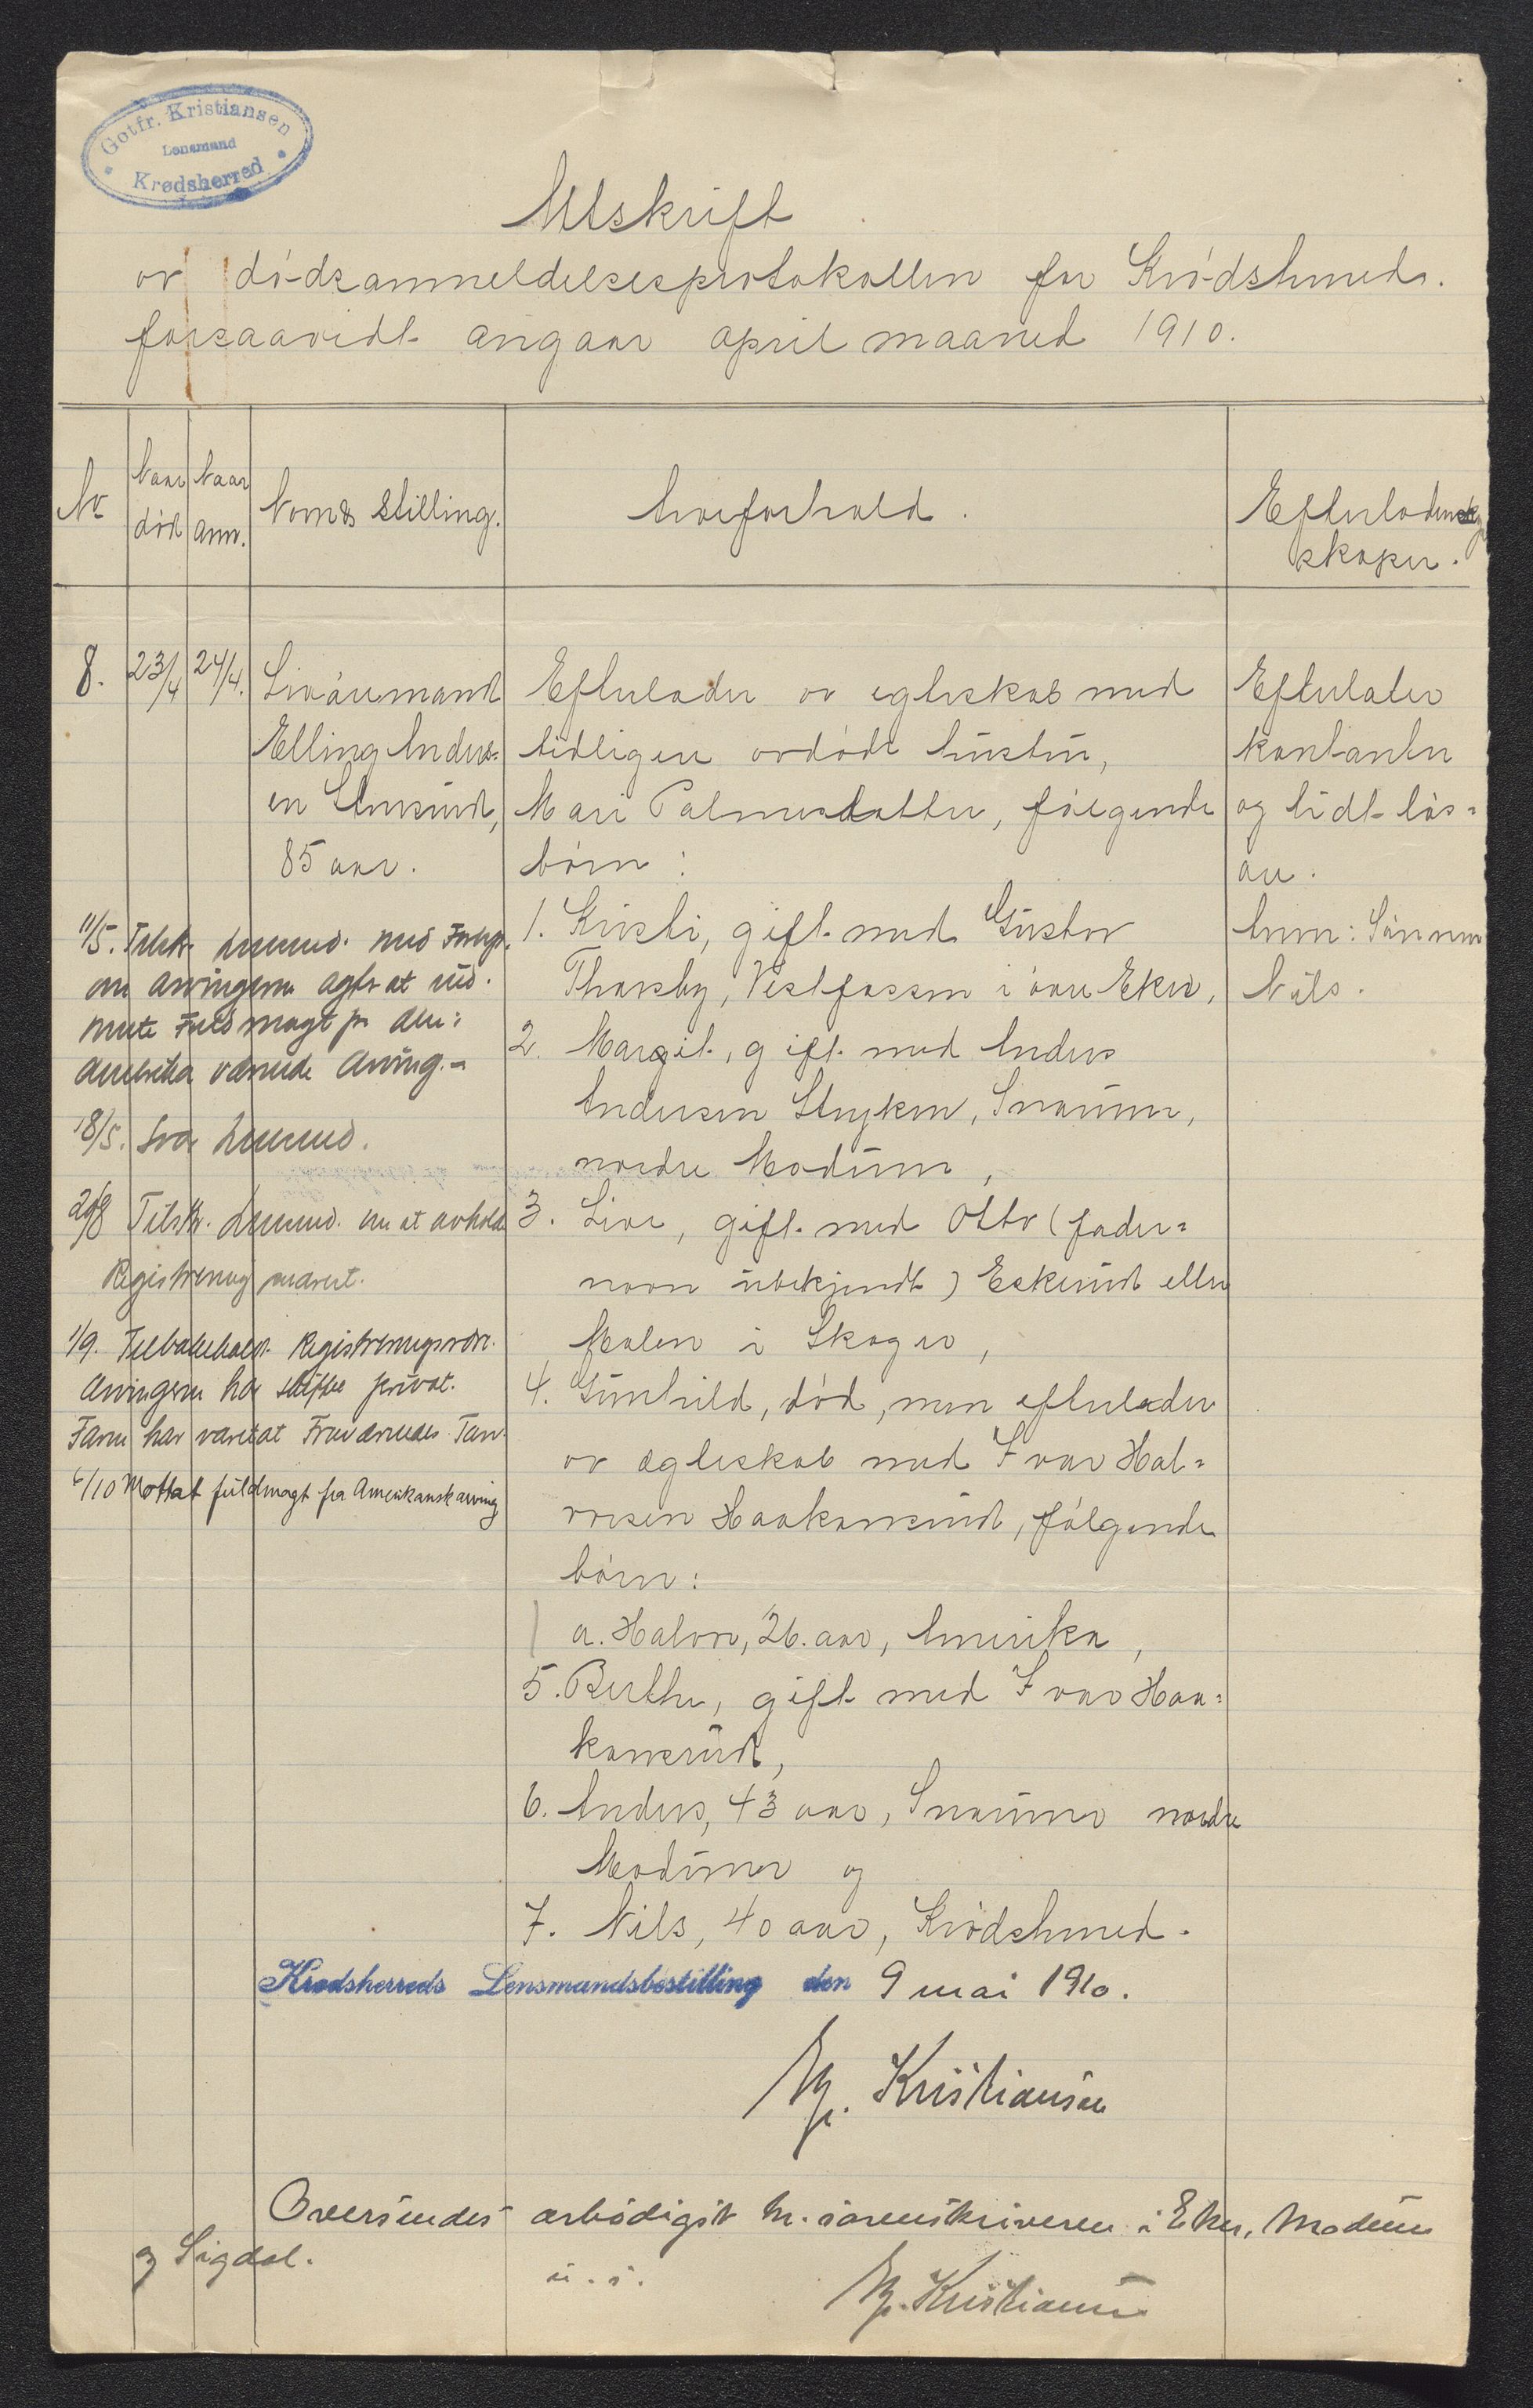 Gotfr. Kristiansen
Lensmand
Krødsherred
Utskrift
av dødsanmeldelsesprotokollen for Krødsherred.
forsaavidt angaar april maaned 1910.
No
Naar død
Naar anm.
Navn & Stilling.
Arveforhold.
Efterladenskaper.
8.
23/4
24/4.
Livøremand
Elling Anders=
en
85 aar.
Efterlader av egteskab med
tidligere avdødt hustru,
Mari Palmesdatter, følgende
børn:
1. Kristi, gift med Gustav
Thorsby, Vestfossen i øvre Eker,
2. Margit, gift med Anders
Andersen Stryken, Snarum,
nordre Modum,
3. Live, gift med Otto (fader=
navn ubekjendt) Eskerud eller
Molen i Skoger,
4. Gunhild, død, men efterlader
av egteskab med Ivar Hal=
vorsen Haakonsrud, følgende
børn:
a. Halvor, 26. aar, Amerika,
5. Berthe, gift med Ivar Haa=
konsrud,
6. Anders, 43 aar, Snarum nordre
Modum og
7. Nils, 40 aar, Krødsherred.
Efterlater
kontanter
og lidt løs=
øre.
Anm: Sønnen
Nils.
11/5. Tilskr. Lensmd. med Foresp.
om arvingerne agter at
Fuldmagt fra den i
Amerika værende Arving.-
18/5. Svar Lensmd.
26/8 Tilskr. Lensmd. om at avholde
Registrering
1/9. Registreringsordre.
Arvingerne har skiftet privat.
har været at
6/10 Mottat fuldmagt fra Amerikansk arving
Krødsherreds Lensmandsbestilling den 9 mai 1910.
Kristiansen
Oversendes ærbødigst hr. sorenskriveren i Eker, Modum
og Sigdal.
u. s.
Kristiansen